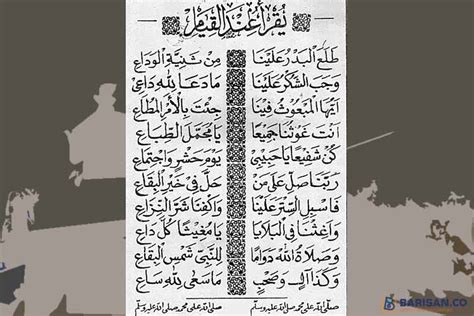 يُقْرَأُ عِنْدَ الْقِيَامِ
طَلَعَ الْبَدْرُ عَلَيْنَا مِنْ ثَنِيَّةِ الْوَدَاعِ
وَجَبَ الشُّكْرُ عَلَيْنَا مَا دَعَا لِلّٰهِ دَاعِ
اَيُّهَا الْمَبْعُوْثُ فِيْنَا جِئْتَ بِالْأَمْرِ الْمُطَاعِ
اَنْتَ غَوْثُنَا جَمِيْعًا يَا مُجَمَّلَ الطِّبَاعِ
كُنْ شَفِيْعًا يَا حَبِيْبِيْ يَوْمَ حَشْرٍ وَاجْتِمَاعِ
رَبَّنَا صَلِّ عَلَى مَنْ حَلَّ فِيْ خَيْرِ الْبِقَاعِ
فَاسْبِلِ السِّتْرَ عَلَيْنَا وَاكْفِنَا شَرَّ النِّزَاعِ
وَاَغِثْنَا فِي الْبَلَايَا يَا مُغِيْثًا كُلَّ دَاعِ
وَصَلَاةُ اللّٰهِ دَوَامًا لِلنَّبِيْ شَمْسِ الْبِقَاعِ
وَكَذَا آلٍ وَصَحْبٍ مَا سَعَى لِلّٰهِ سَاعِ
صَلَّى اللهُ عَلَى مُحَمَّدٍ صَلَّى اللهُ عَلَيْهِ وَسَلَّمَ صَلَّى اللهُ عَلَى مُحَمَّدٍ صَلَّى اللهُ عَلَيْهِ وَسَلَّمَ
BARISAN.CO